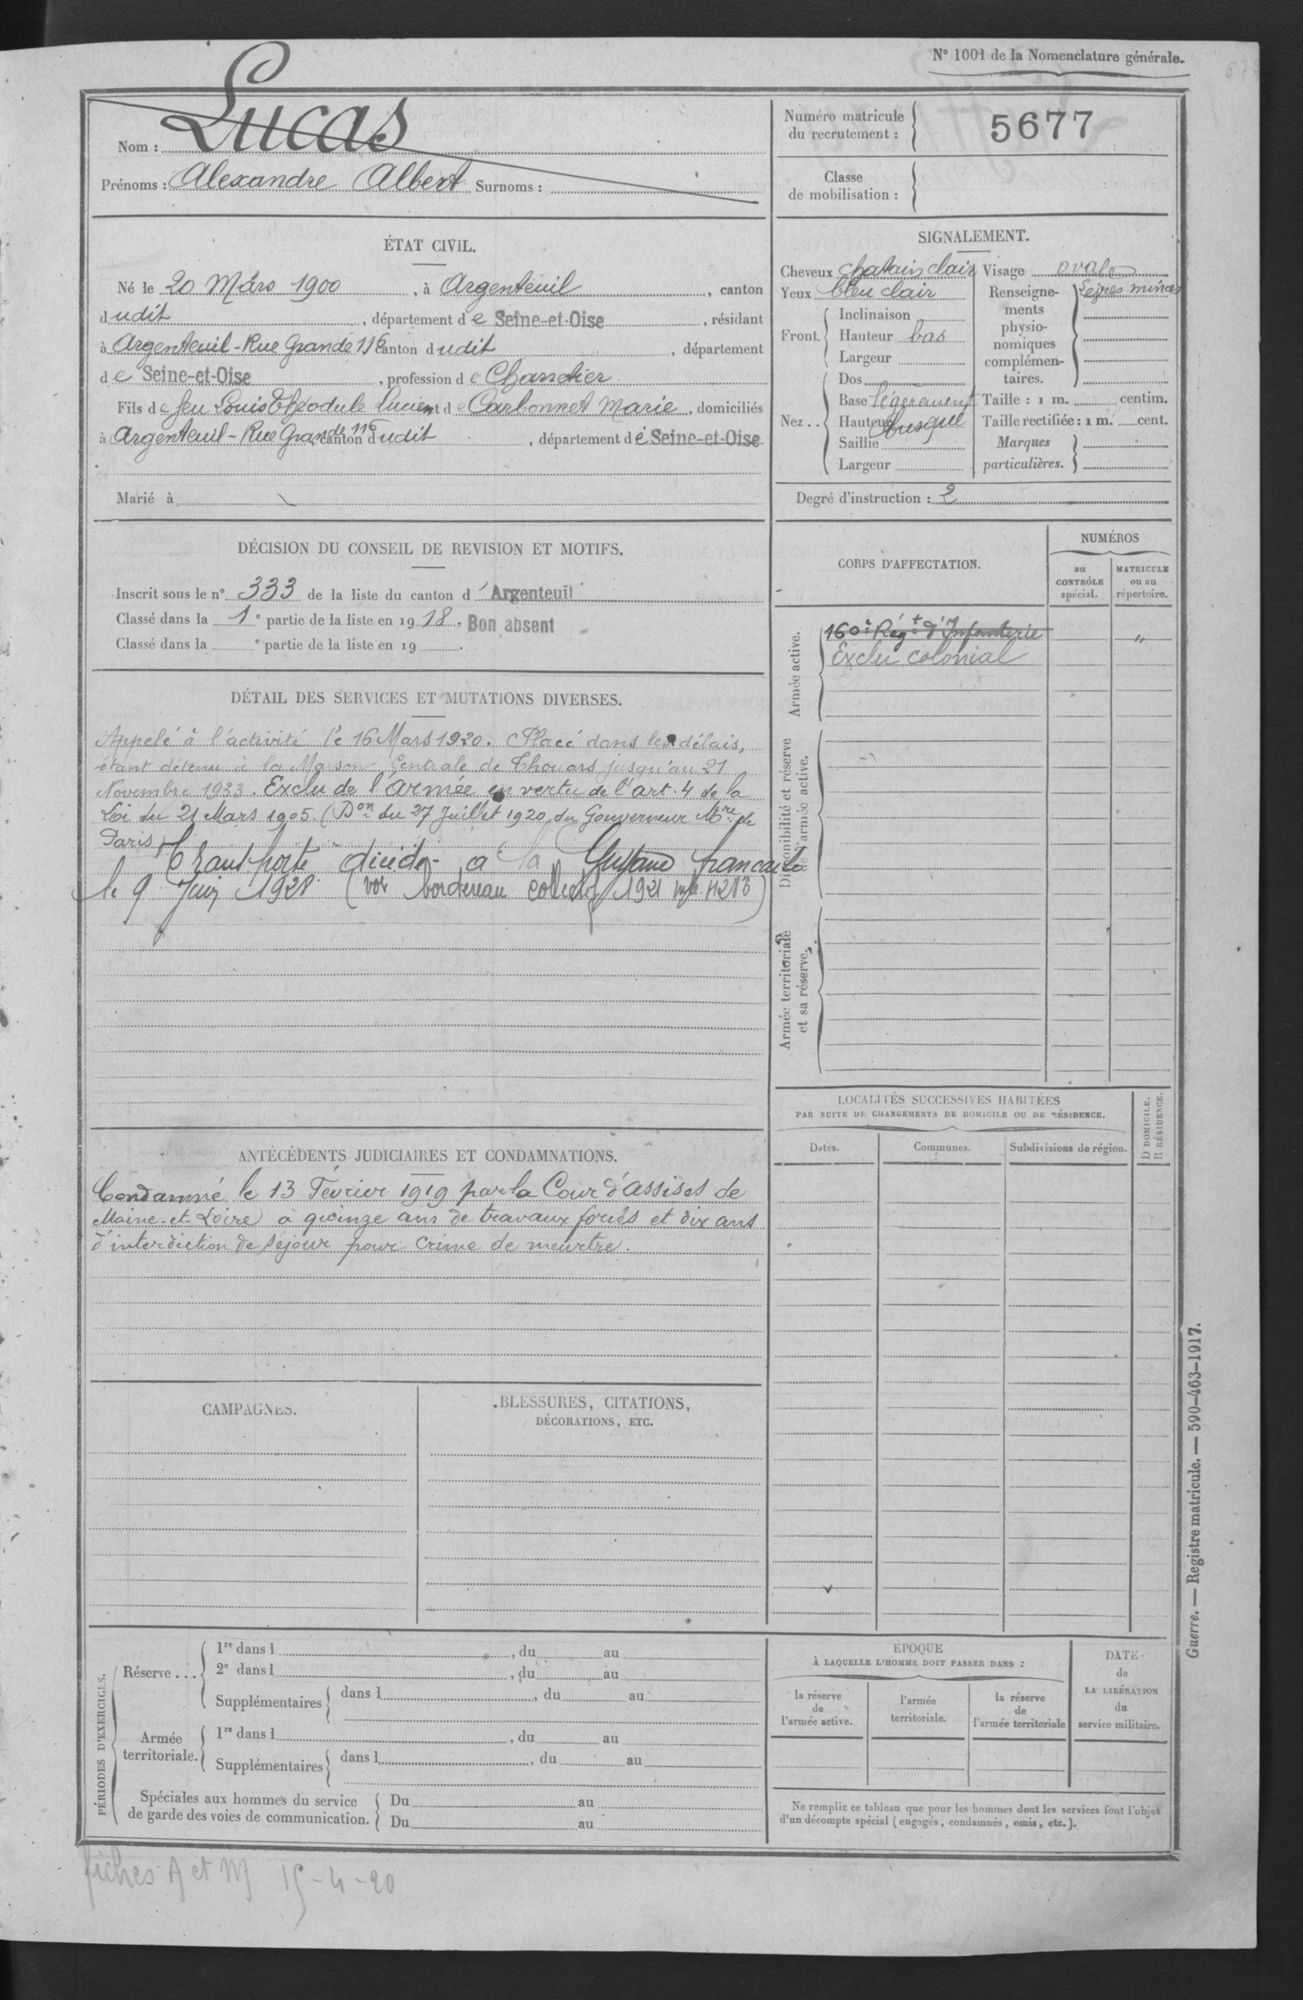 N° 1001 de la Nomenclature générale.
Nom : Lucas
Prénoms : Alexandre Albert Surnoms :
Numéro matricule du recrutement : 5677
Classe de mobilisation :
ÉTAT CIVIL.
Né le 20 Mars 1900, à Argenteuil, canton
dudit, département de Seine-et-Oise, résidant
à Argenteuil - Rue Grande 116 canton dudit, département
de Seine-et-Oise, profession de Charretier
Fils de feu Louis Théodule Lucien et de Carbonnet Marie, domiciliés
à Argenteuil - Rue Grande 116 canton dudit, département de Seine-et-Oise
Marié à
SIGNALEMENT.
Cheveux chatain clair Visage ovale
Yeux bleu clair Renseignements physionomiques complémentaires. Lèvres minces
Front. Inclinaison
Hauteur bas
Largeur
Nez.. Dos
Base légèrement
Hauteur busqué
Saillie
Largeur
Taille : 1 m. centim.
Taille rectifiée : 1 m. cent.
Marques particulières.
Degré d'instruction : 2
DÉCISION DU CONSEIL DE REVISION ET MOTIFS.
Inscrit sous le n° 333 de la liste du canton d'Argenteuil
Classé dans la 1e partie de la liste en 1918. Bon absent
Classé dans la e partie de la liste en 19 .
CORPS D'AFFECTATION.
NUMÉROS
au CONTRÔLE spécial.
MATRICULE ou au répertoire.
Armée active.
160e Régt d'Infanterie "
Exclu colonial
Disponibilité et réserve de l'armée active.
Armée territoriale et sa réserve.
DÉTAIL DES SERVICES ET MUTATIONS DIVERSES.
Appelé à l'activité le 16 Mars 1920. Placé dans les délais,
étant détenu à la Maison Centrale de Thouars jusqu'au 21
Novembre 1933. Exclu de l'armée en vertu de l'art. 4 de la
Loi du 21 Mars 1905. (Don du 27 Juillet 1920 du Gouverneur Mre de
Paris)
Transporté à la Guyane française
le 9 Juin 1921 (voir bordereau collectif 1921 4283)
ANTÉCÉDENTS JUDICIAIRES ET CONDAMNATIONS.
Condamné le 13 Février 1919 par la Cour d'assises de
Maine-et-Loire à quinze ans de travaux forcés et dix ans
d'interdiction de séjour pour crime de meurtre.
LOCALITÉS SUCCESSIVES HABITÉES
PAR SUITE DE CHANGEMENTS DE DOMICILE OU DE RÉSIDENCE.
Dates. Communes. Subdivisions de région. D DOMICILE. R RÉSIDENCE.
CAMPAGNES.
BLESSURES, CITATIONS,
DÉCORATIONS, ETC.
PÉRIODES D'EXERCICES.
Réserve... 1re dans l , du au
2e dans l , du au
Supplémentaires dans l , du au
Armée territoriale. 1re dans l , du au
Supplémentaires dans l , du au
Spéciales aux hommes du service de garde des voies de communication. Du au
Du au
ÉPOQUE
À LAQUELLE L'HOMME DOIT PASSER DANS :
la réserve de l'armée active.
l'armée territoriale.
la réserve de l'armée territoriale
DATE de LA LIBÉRATION du service militaire.
Ne remplir ce tableau que pour les hommes dont les services font l'objet
d'un décompte spécial (engagés, condamnés, omis, etc.).
Guerre. — Registre matricule. — 590-463-1917.
fiches A et M 15-4-20